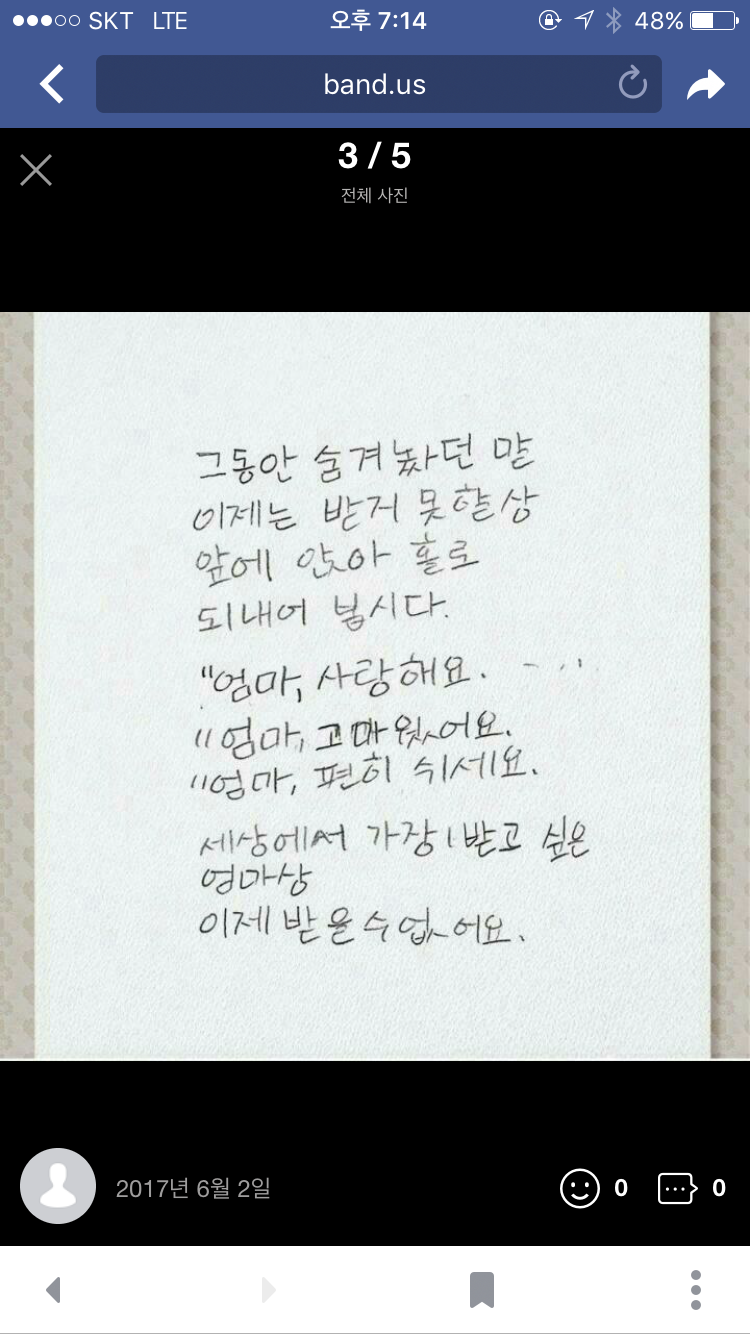 SKT LTE 오후 7:14 48%
band.us
3 / 5
전체 사진
그동안 숨겨놨던 말
이제는 받거 못할상
앞에 앉아 홀로
되내어 봅시다.
"엄마, 사랑해요. - ...
"엄마, 고마웠어요.
"엄마, 편히 쉬세요.
세상에서 가장 받고 싶은
엄마상
이제 받을수 없어요.
2017년 6월 2일
0 0